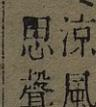 涼風
思聲